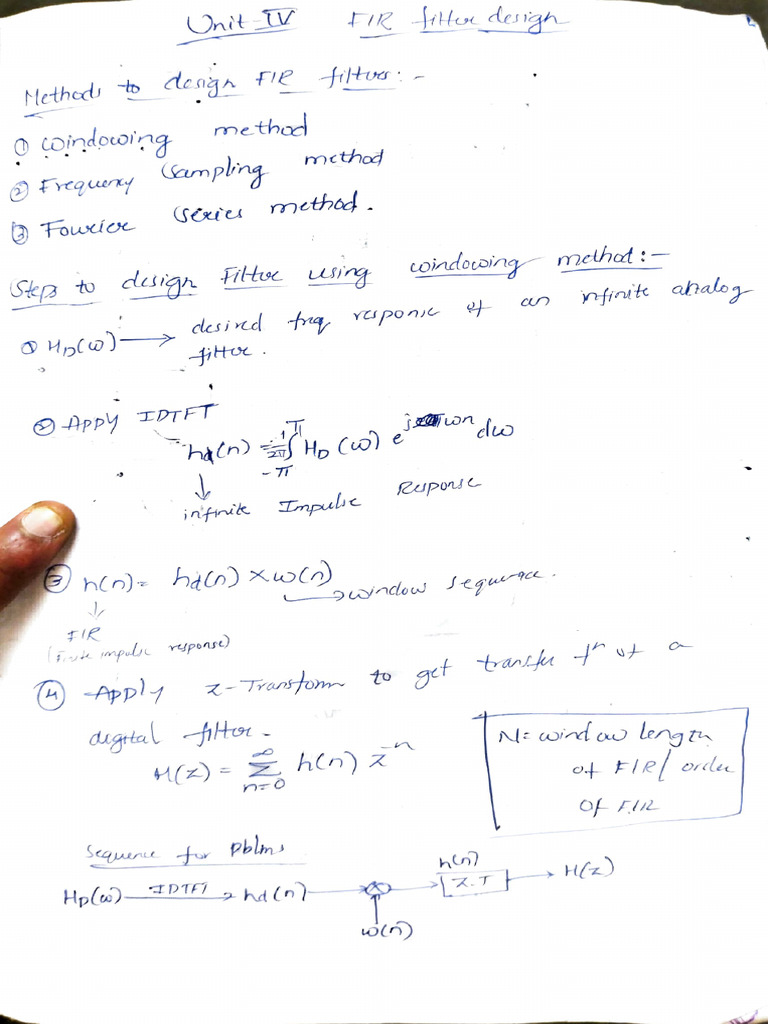 Unit-IV FIR filter design
Methods to design FIR filters:-
① windowing method
② Frequency Sampling method
③ Fourier Series method.
Steps to design Filter using windowing method:-
① H_D(ω) → desired freq response of an infinite analog
filter.
② Apply IDTFT
h_d(n) = 1/2π ∫_{-π}^{π} H_D(ω) e^{jωn} dω
↓
infinite Impulse Response
③ h(n) = h_d(n) × ω(n)
→ window sequence.
↓
FIR
(finite impulse response)
④ Apply z-Transform to get transfer fⁿ of a
digital filter.
H(z) = ∑_{n=0}^{∞} h(n) z^{-n}
N = window length
of FIR/order
of FIR
Sequence for pblms
H_D(ω) —IDTFT→ h_d(n) → ⊗ → h(n) Z.T → H(z)
↑
ω(n)